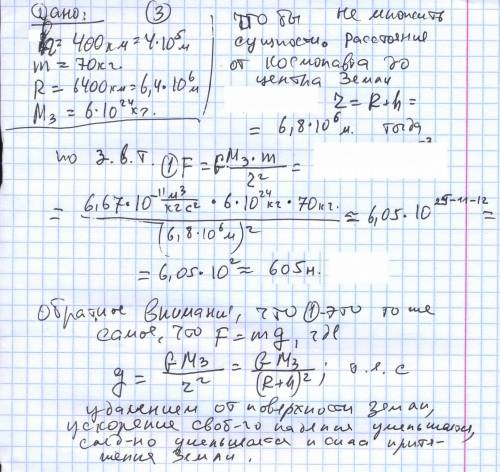 Дано: ③
h = 400 км = 4·10⁵ м
m = 70 кг.
R = 6400 км = 6,4·10⁶ м
M₃ = 6·10²⁴ кг.
что бы не множить
сущности. расстояние
от космонавта до
центра Земли
r = R+h =
= 6,8·10⁶ м. тогда
по З.В.Т. ① F = G M₃·m / r² =
= 6,67·10⁻¹¹ м³/кг с² · 6·10²⁴ кг · 70 кг. / (6,8·10⁶ м)² ≈ 6,05·10²⁵⁻¹¹⁻¹² =
= 6,05·10² ≈ 605 н.
Обратите внимание, что ①-это то же
самое, что F = mg, где
g = G M₃ / r² = G M₃ / (R+h)² ; т.е. с
удалением от поверхности земли,
ускорение своб-го падения уменьшается,
след-но уменьшается и сила притя-
жения Земли.